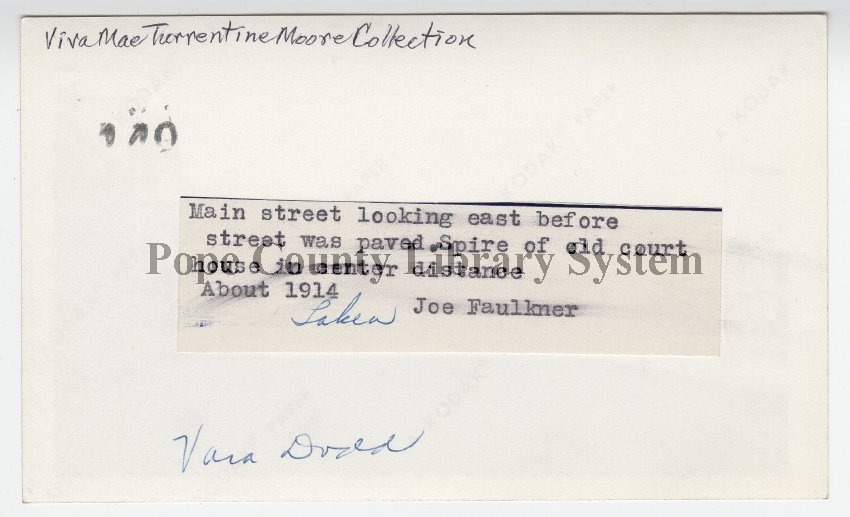 Viva Mae Turrentine Moore Collection
140
Main street looking east before
street was paved.Spire of old court
Pope County Library System
house in center distance
About 1914
Taken
Joe Faulkner
Vara Dodd